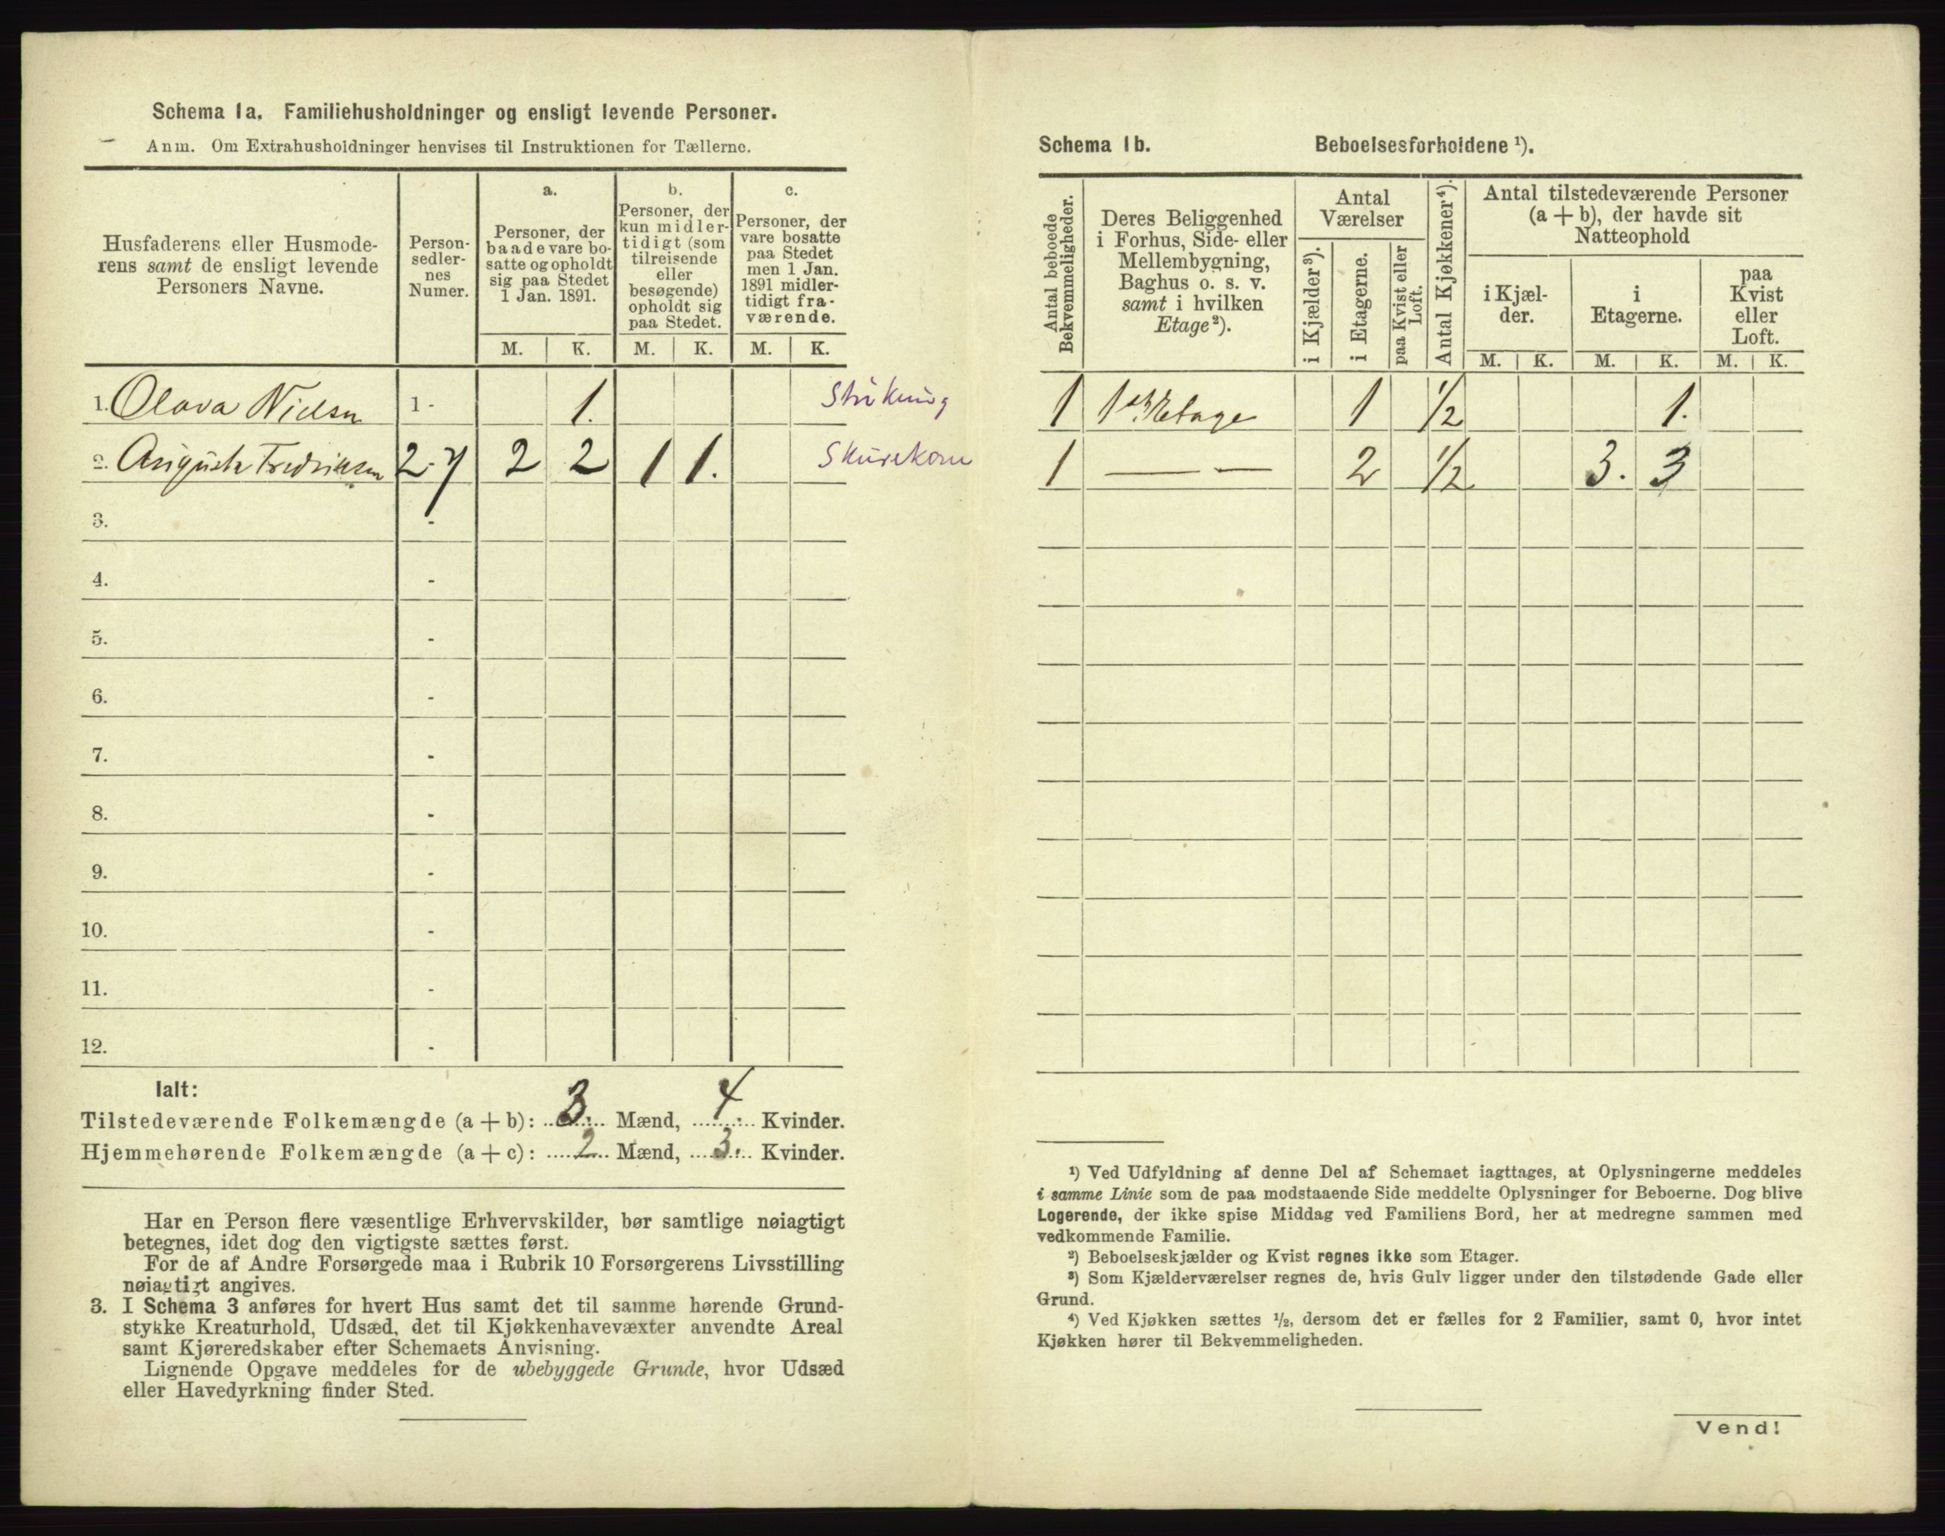 Schema 1a. Familiehusholdninger og ensligt levende Personer.
Anm. Om Extrahusholdninger henvises til Instruktionen for Tællerne.
Husfaderens eller Husmode-
rens samt de ensligt levende
Personers Navne.
Person-
sedler-
nes
Numer.
a.
Personer, der
baade vare bo-
satte og opholdt
sig paa Stedet
1 Jan. 1891.
b.
Personer, der
kun midler-
tidigt (som
tilreisende
eller
besøgende)
opholdt sig
paa Stedet.
c.
Personer, der
vare bosatte
paa Stedet
men 1 Jan.
1891 midler-
tidigt fra-
værende.
M. K. M. K. M. K.
1. Olava Nielsen 1 - 1.
2. Augusta Fredriksen 2-7 2 2 1 1.
3. -
4. -
5. -
6. -
7. -
8. -
9. -
10. -
11. -
12. -
Ialt:
Tilstedeværende Folkemængde (a + b): 3. Mænd, 4. Kvinder.
Hjemmehørende Folkemængde (a + c): 2 Mænd, 3. Kvinder.
Har en Person flere væsentlige Erhvervskilder, bør samtlige nøiagtigt
betegnes, idet dog den vigtigste sættes først.
For de af Andre Forsørgede maa i Rubrik 10 Forsørgerens Livsstilling
nøiagtigt angives.
3. I Schema 3 anføres for hvert Hus samt det til samme hørende Grund-
stykke Kreaturhold, Udsæd, det til Kjøkkenhavevæxter anvendte Areal
samt Kjøreredskaber efter Schemaets Anvisning.
Lignende Opgave meddeles for de ubebyggede Grunde, hvor Udsæd
eller Havedyrkning finder Sted.
Schema 1b. Beboelsesforholdene ¹).
Antal beboede
Bekvemmeligheder.
Deres Beliggenhed
i Forhus, Side- eller
Mellembygning,
Baghus o. s. v.
samt i hvilken
Etage²).
Antal
Værelser
i Kjælder³).
i Etagerne.
paa Kvist eller
Loft.
Antal Kjøkkener⁴).
Antal tilstedeværende Personer
(a + b), der havde sit
Natteophold
i Kjæl-
der.
i
Etagerne.
paa
Kvist
eller
Loft.
M. K. M. K. M. K.
1 1ste Etage 1 1/2 1.
1 — — 2 1/2 3. 3
¹) Ved Udfyldning af denne Del af Schemaet iagttages, at Oplysningerne meddeles
i samme Linie som de paa modstaaende Side meddelte Oplysninger for Beboerne. Dog blive
Logerende, der ikke spise Middag ved Familiens Bord, her at medregne sammen med
vedkommende Familie.
²) Beboelseskjælder og Kvist regnes ikke som Etager.
³) Som Kjælderværelser regnes de, hvis Gulv ligger under den tilstødende Gade eller
Grund.
⁴) Ved Kjøkken sættes ½, dersom det er fælles for 2 Familier, samt 0, hvor intet
Kjøkken hører til Bekvemmeligheden.
Vend!